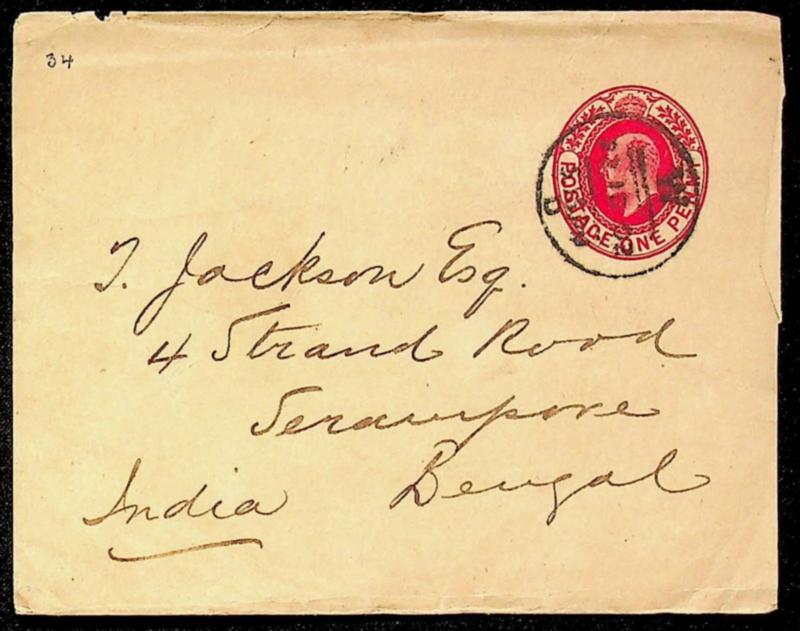 34
POSTAGE ONE PENNY
T. Jackson Esq.
4 Strand Road
Serampore
Bengal
India